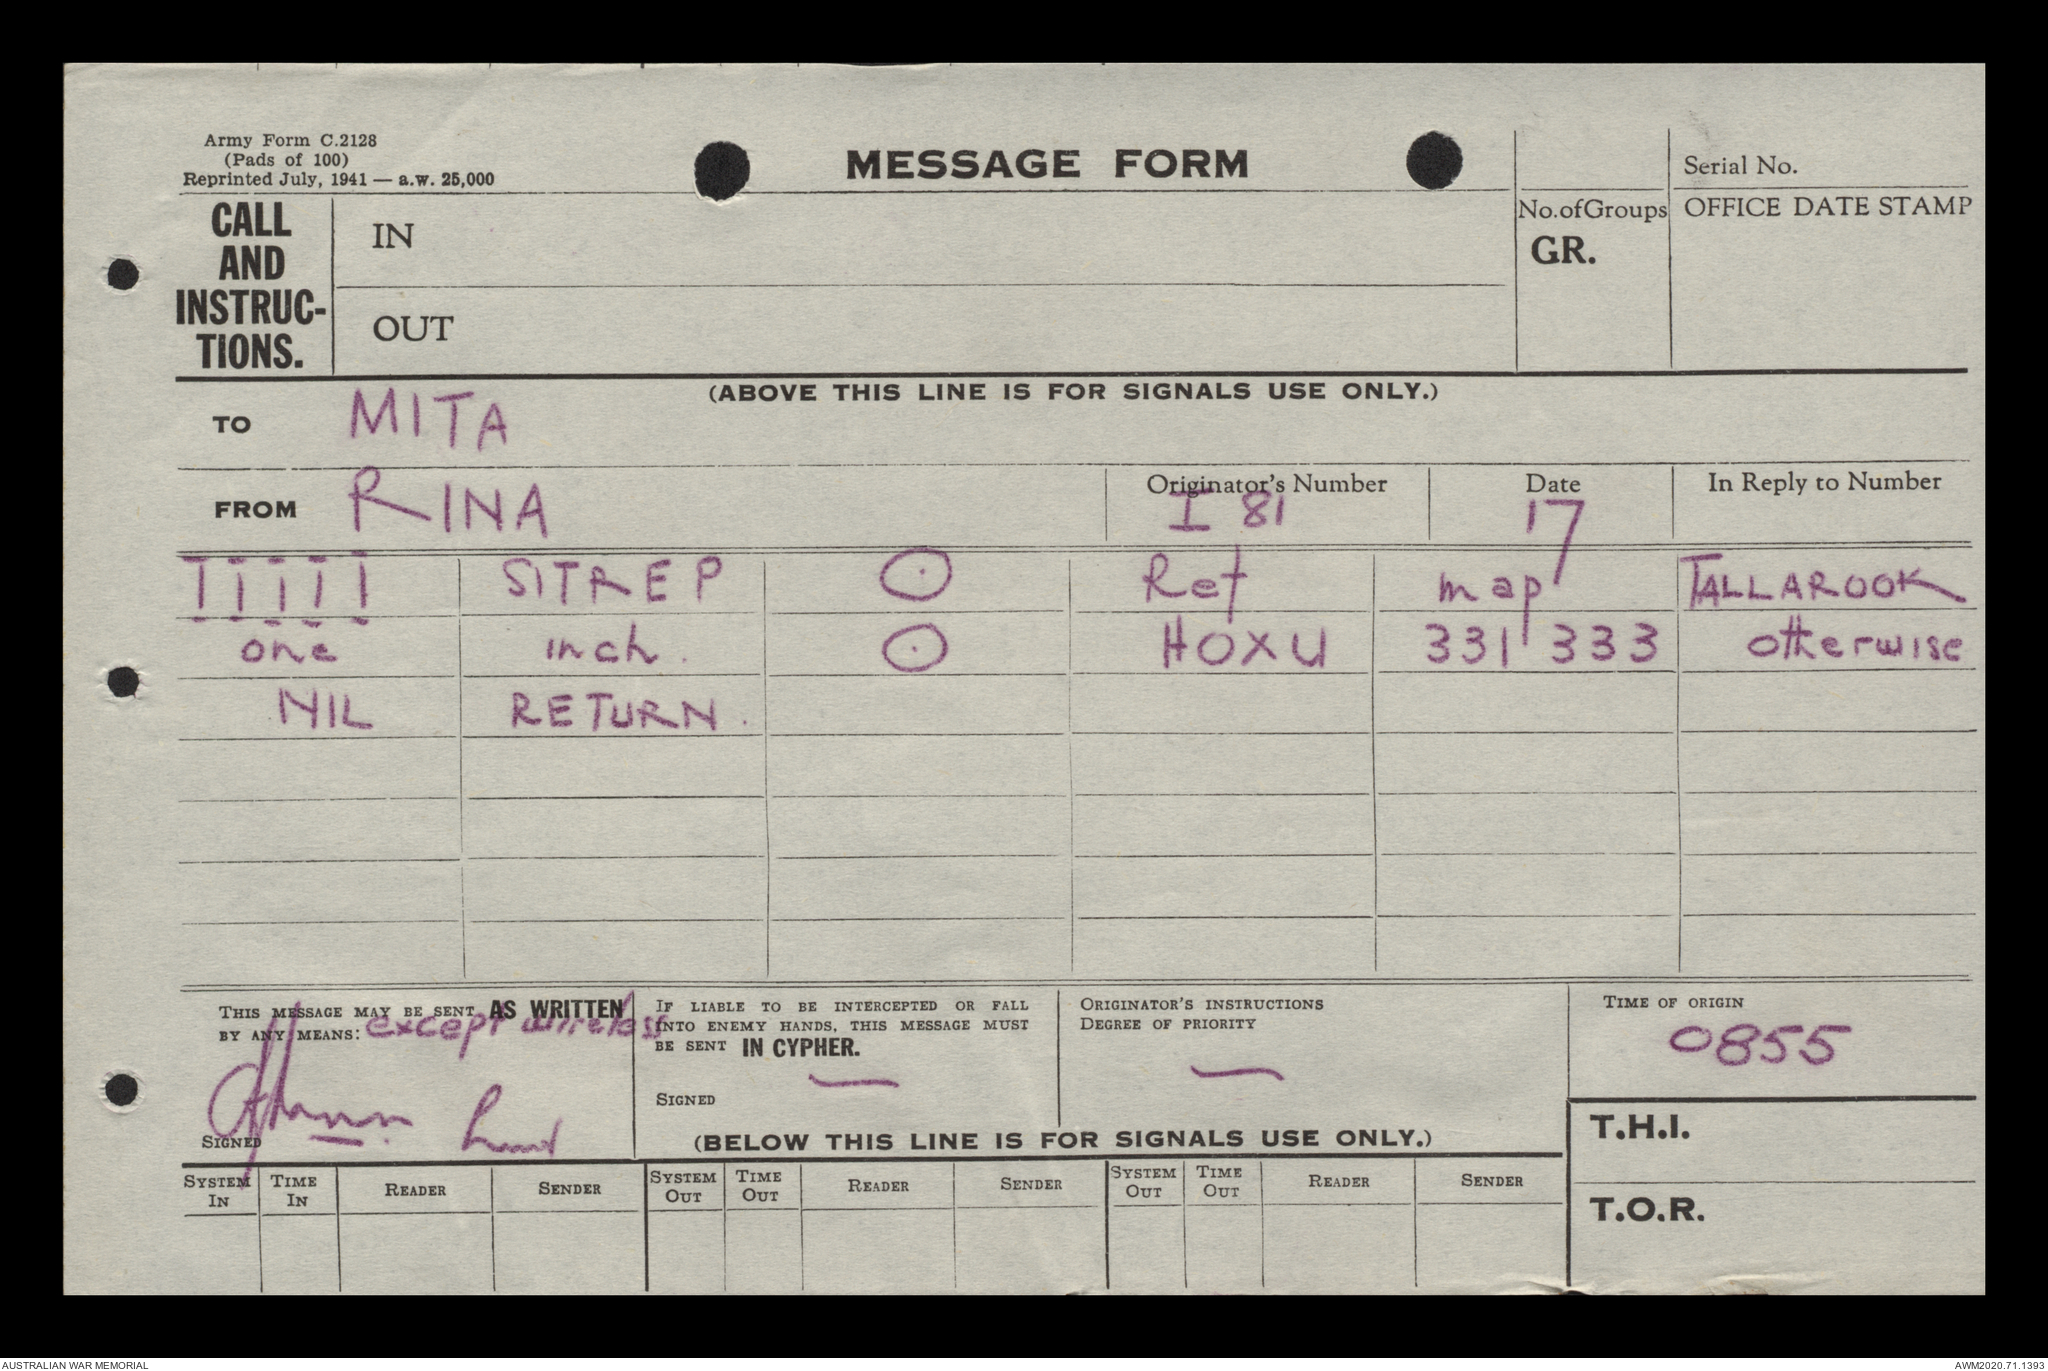 Army Form C.2128
(Pads of 100)
Reprinted July, 1941 — a.w. 25,000
MESSAGE FORM
Serial No.
CALL AND INSTRUC-TIONS.
IN
OUT
No. of Groups
GR.
OFFICE DATE STAMP
(ABOVE THIS LINE IS FOR SIGNALS USE ONLY.)
TO MITA
FROM RINA
Originator's Number I 81
Date 17
In Reply to Number
IIIII SITREP ⊙ Ref map TALLAROOK
one inch. ⊙ HOXU 331 333 otherwise
NIL RETURN.
THIS MESSAGE MAY BE SENT AS WRITTEN
BY ANY MEANS: except wireless
SIGNED
IF LIABLE TO BE INTERCEPTED OR FALL
INTO ENEMY HANDS, THIS MESSAGE MUST
BE SENT IN CYPHER.
SIGNED
ORIGINATOR'S INSTRUCTIONS
DEGREE OF PRIORITY
TIME OF ORIGIN
0855
(BELOW THIS LINE IS FOR SIGNALS USE ONLY.)
T.H.I.
T.O.R.
SYSTEM IN TIME IN READER SENDER SYSTEM OUT TIME OUT READER SENDER SYSTEM OUT TIME OUT READER SENDER
AUSTRALIAN WAR MEMORIAL
AWM2020.71.1393